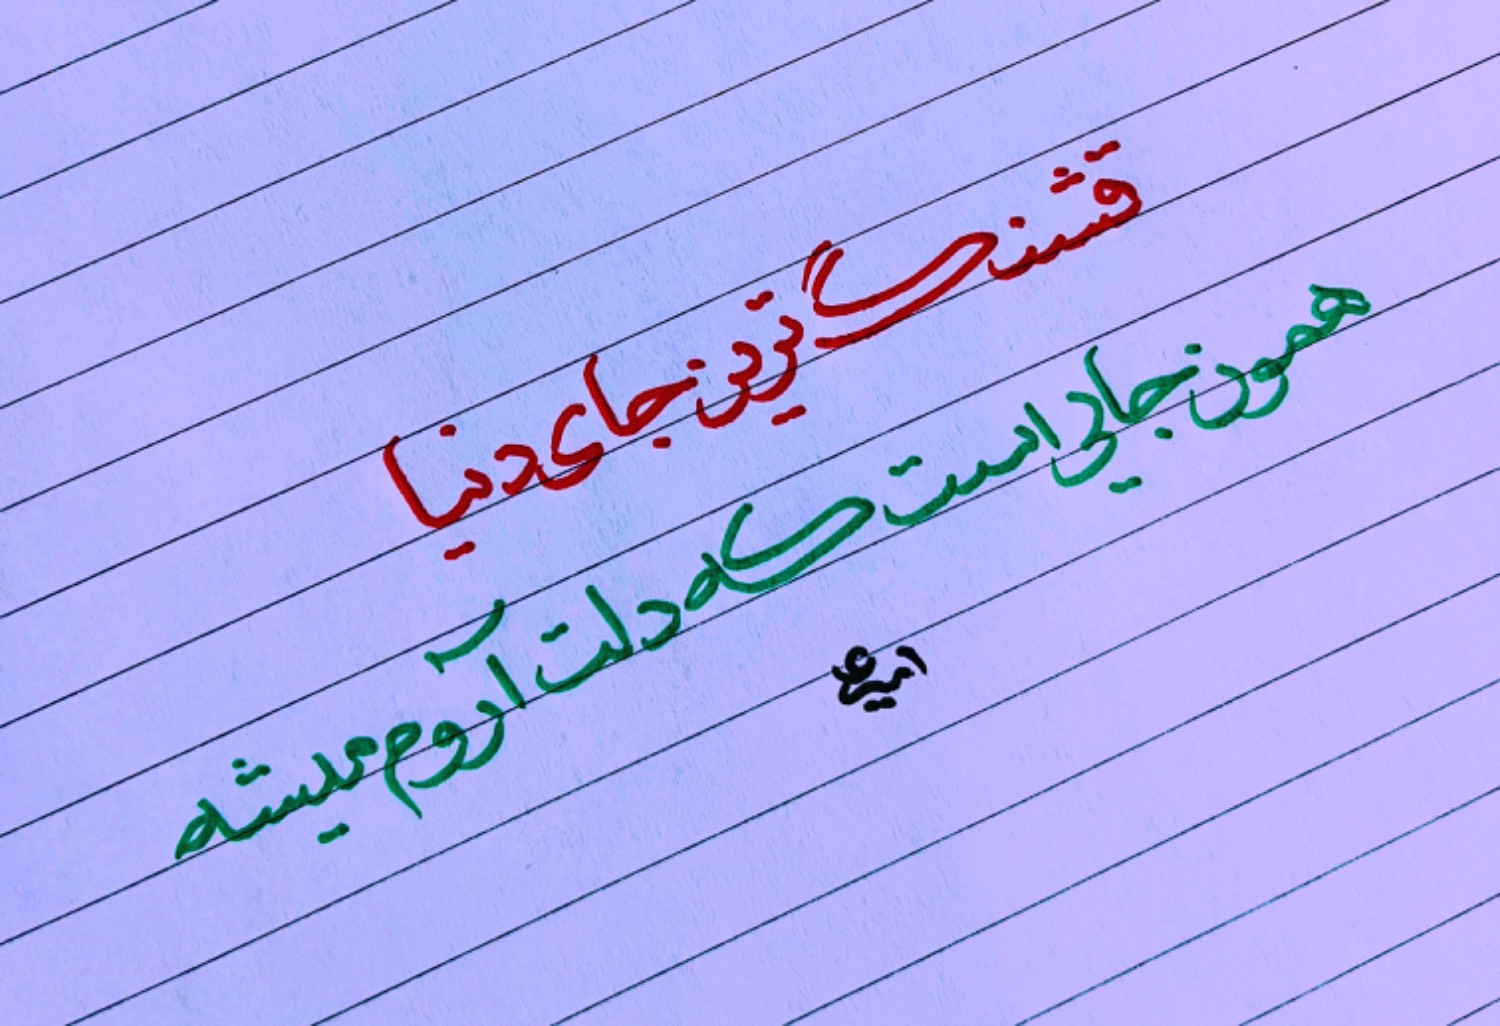 قشنگترین جای دنیا
همون جایی است که دلت آروم میشه